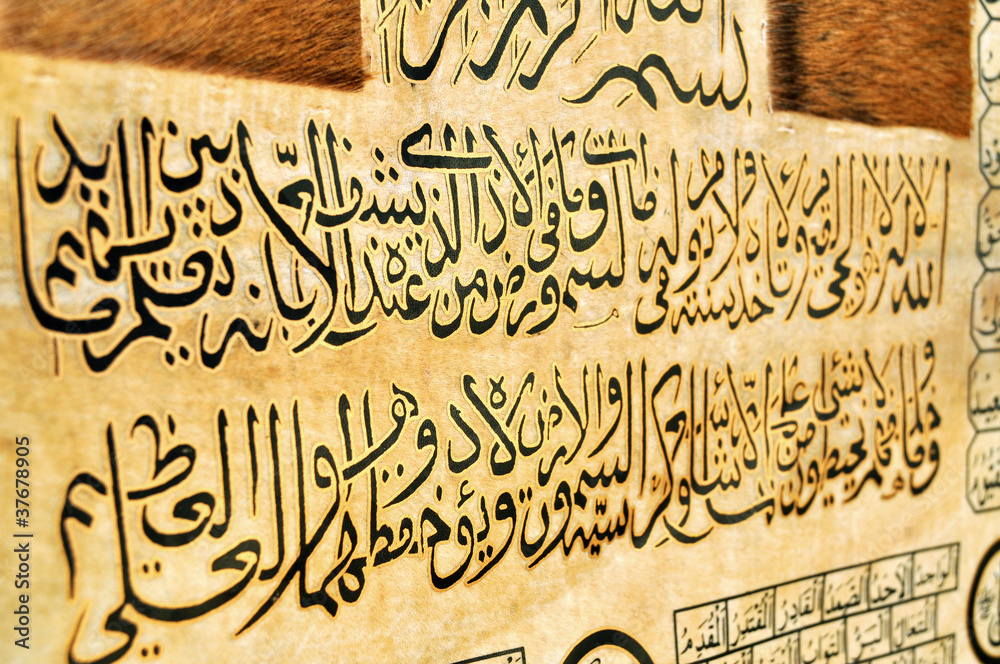 بسم الله
الله لا اله الا هو الحي القيوم لا تأخذه سنة ولا نوم له ما في السموات وما في الارض من ذا الذي يشفع عنده الا باذنه يعلم ما بين ايديهم وما
خلفهم ولا يحيطون بشئ من علمه الا بما شاء وسع كرسيه السموات والارض ولا يؤده حفظهما وهو العلي العظيم
الْوَاحِدُ الْأَحَدُ الصَّمَدُ الْقَادِرُ الْمُقْتَدِرُ الْمُقَدِّمُ
الْمُتَعَالُ الْبَرُّ التَّوَّابُ
Adobe Stock | #37678905